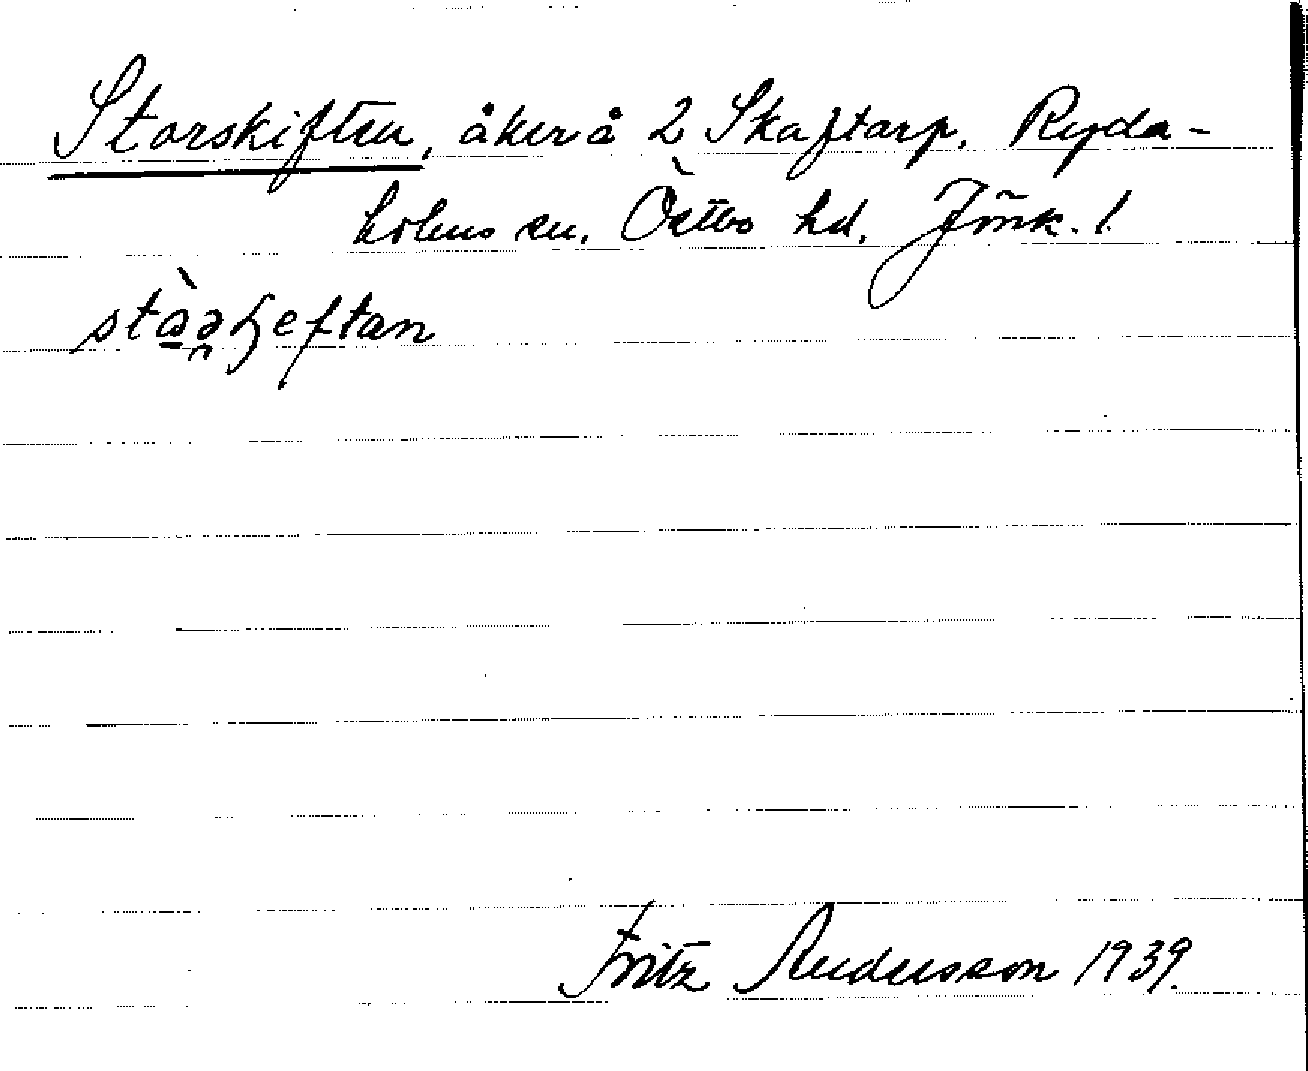 Storskiften, åker å 2 Skaftarp, Ryda-
holms sn. Östbo hd. Jönk. l.
Fritz Andersson 1939.